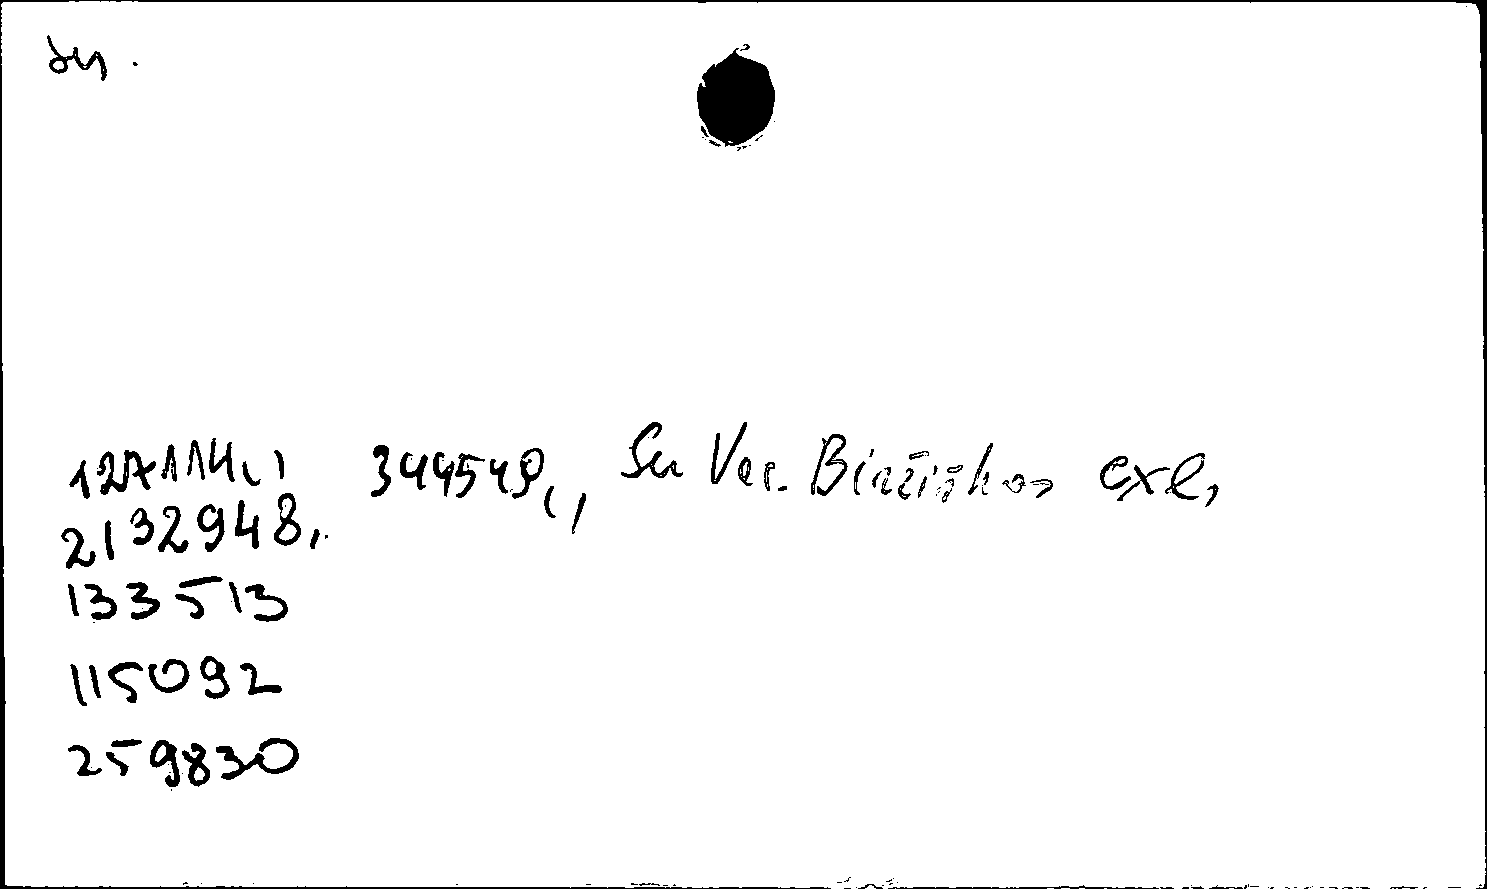 127114,, 344549,, Su Vac. Biržiškos exl,
2132948,
133513
115092
259830